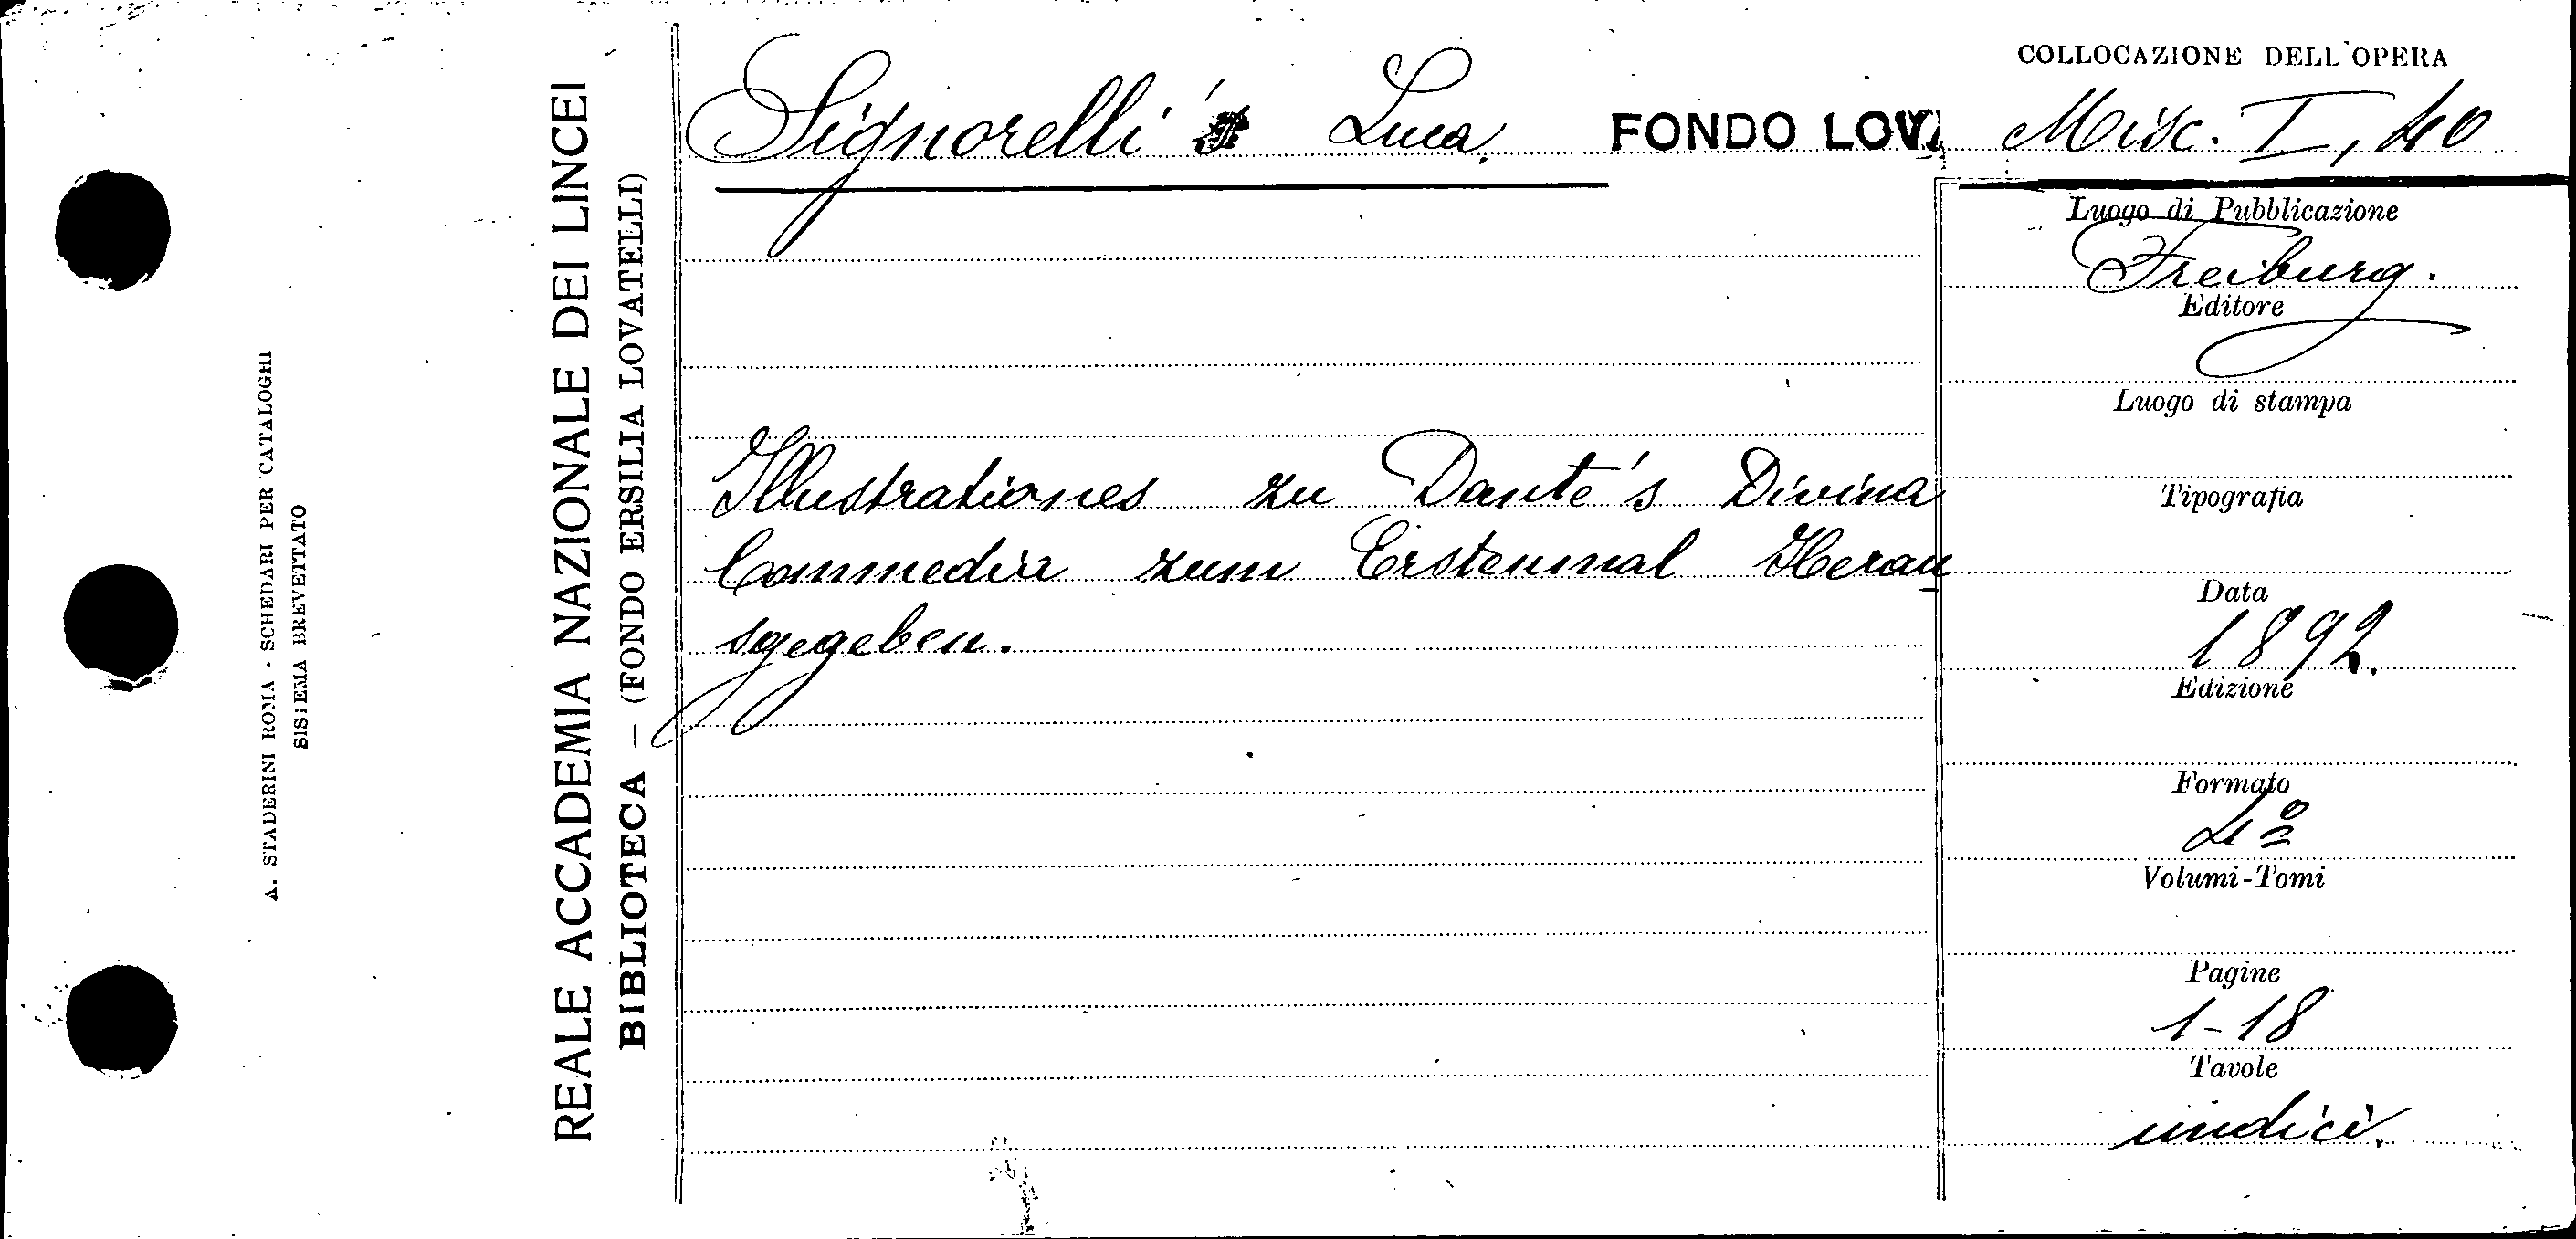 A. STADERINI ROMA - SCHEDARI PER CATALOGHI
SISTEMA BREVETTATO
REALE ACCADEMIA NAZIONALE DEI LINCEI
BIBLIOTECA – (FONDO ERSILIA LOVATELLI)
Signorelli's Luca. FONDO LOV
Illustrationes zu Dante's Divina
Commedia zum Erstenmal Herau
sgegeben.
COLLOCAZIONE DELL'OPERA
Misc. I, 40
Luogo di Pubblicazione
Freiburg.
Editore
Luogo di stampa
Tipografia
Data
1892.
Edizione
Formato
4º
Volumi-Tomi
Pagine
1-18
Tavole
undici.